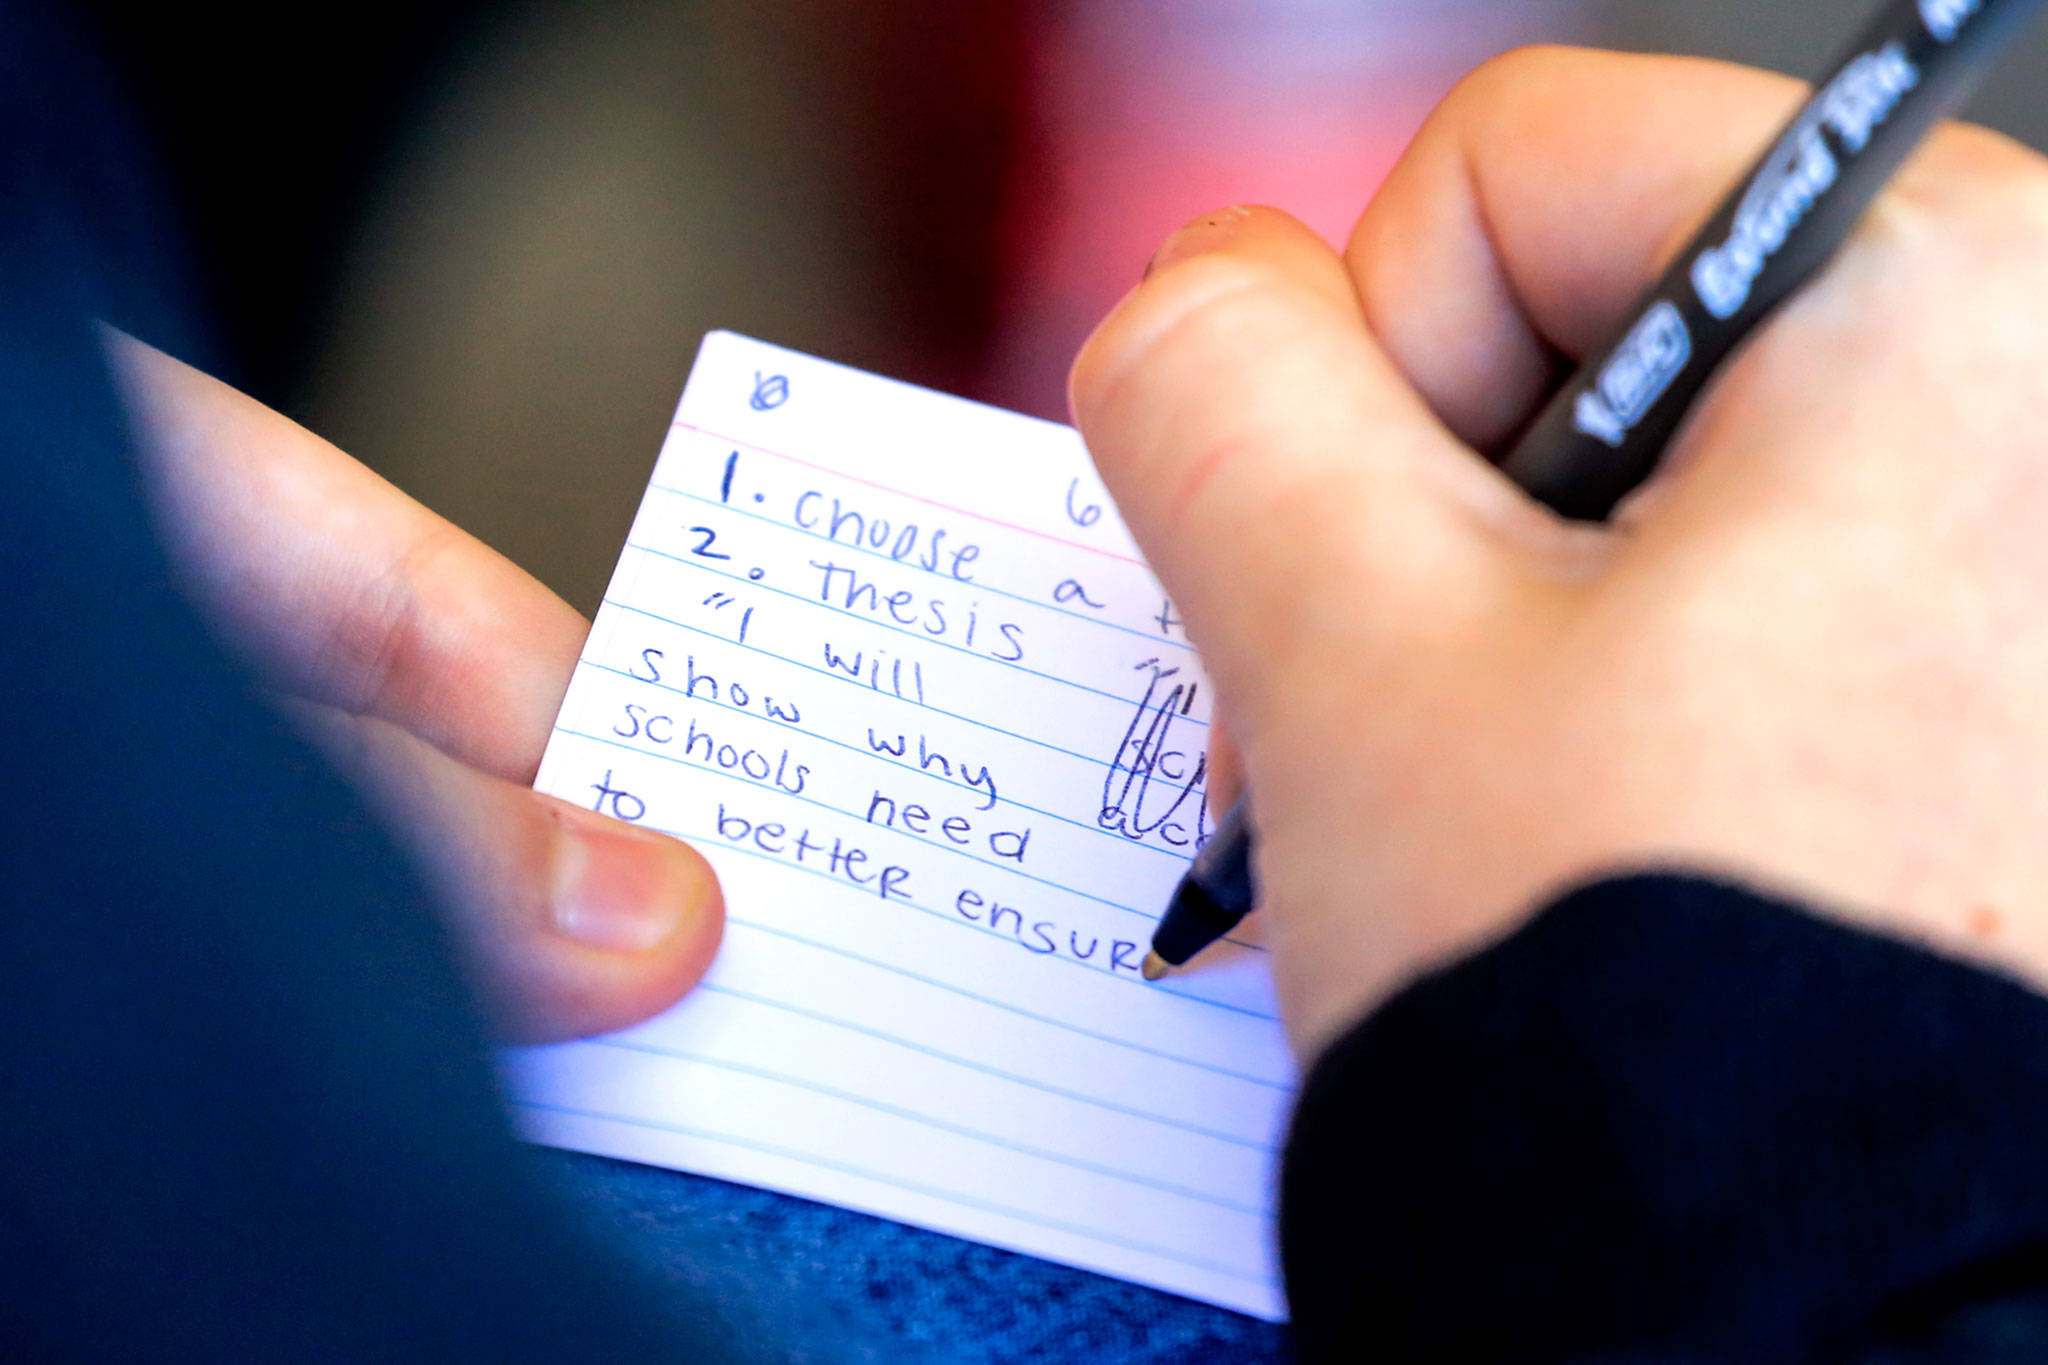 6
1. Choose a
2. Thesis
"I will
show why
schools need
to better ensur
BIC Round Stic